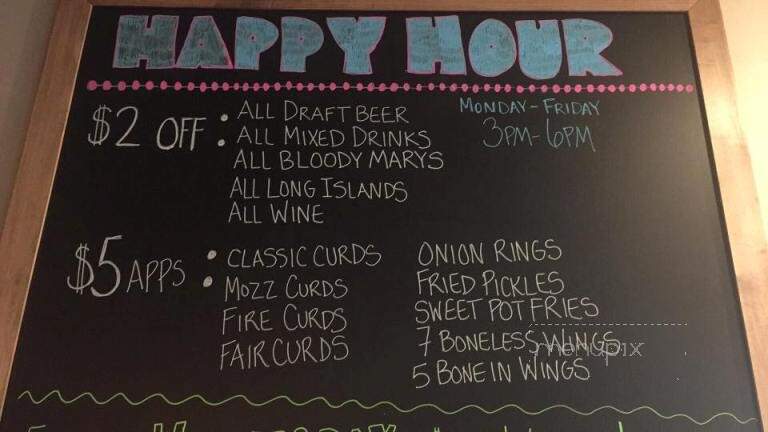 HAPPY HOUR
$2 OFF:
ALL DRAFT BEER
ALL MIXED DRINKS
ALL BLOODY MARYS
ALL LONG ISLANDS
ALL WINE
MONDAY-FRIDAY
3PM-6PM
$5 APPS:
CLASSIC CURDS
MOZZ CURDS
FIRE CURDS
FAIR CURDS
ONION RINGS
FRIED PICKLES
SWEET POT FRIES
7 BONELESS WINGS
5 BONE IN WINGS
menupix